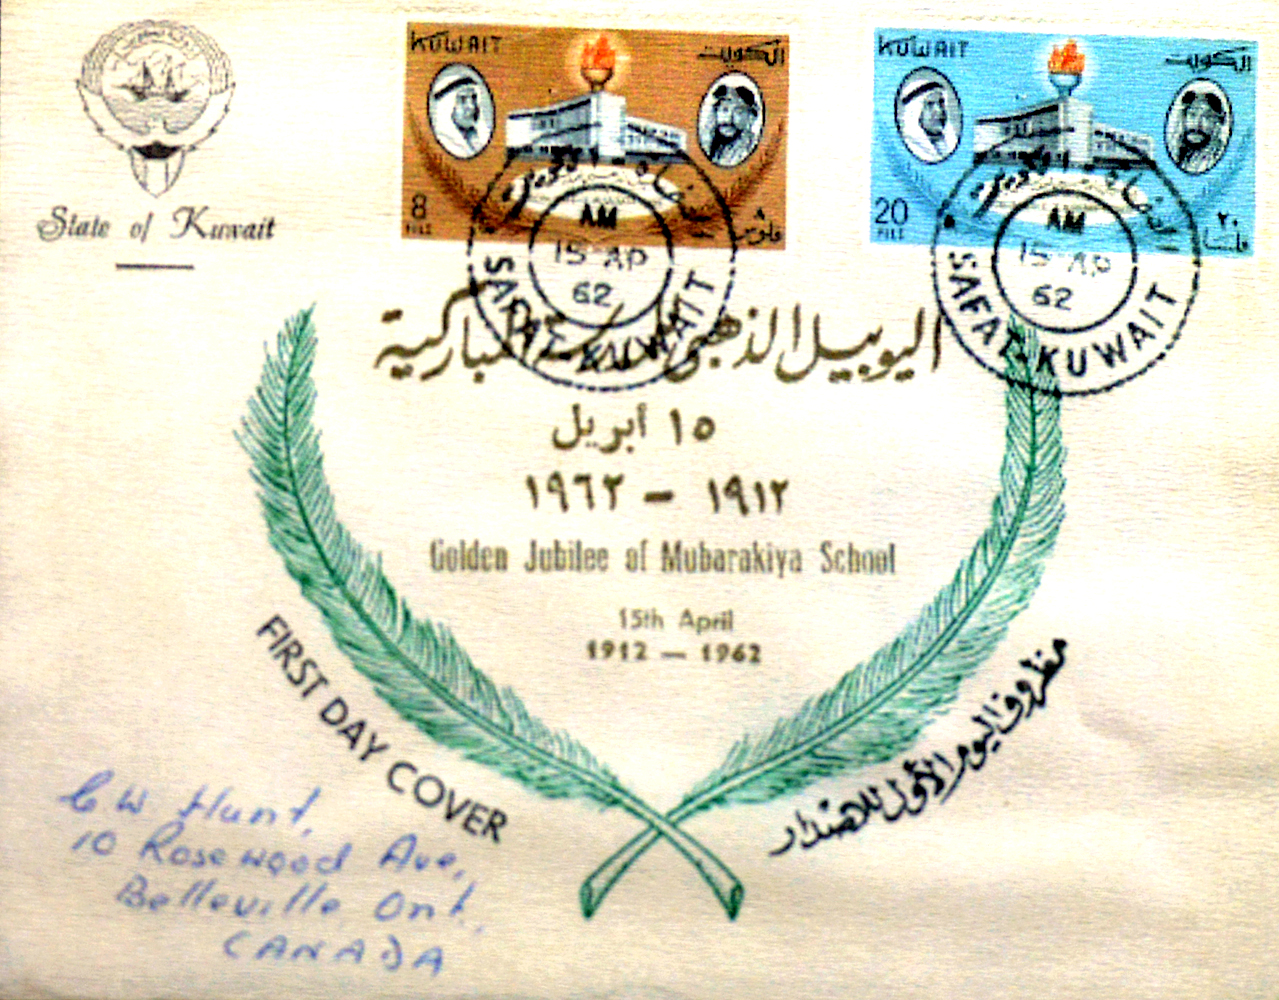 State of Kuwait
KUWAIT
الكويت
8
FILS
٨
فلوس
KUWAIT
الكويت
20
FILS
٢٠
فلسا
AM
15 AP
62
SAFAT-KUWAIT
الصفاة - الكويت
AM
15 AP
62
SAFAT-KUWAIT
اليوبيل الذهبي للمدرسة المباركية
١٥ أبريل
١٩١٢ - ١٩٦٢
Golden Jubilee of Mubarakiya School
15th April
1912 — 1962
FIRST DAY COVER
مظروف اليوم الأول للإصدار
C W Hunt,
10 Rosewood Ave,
Belleville Ont.,
CANADA